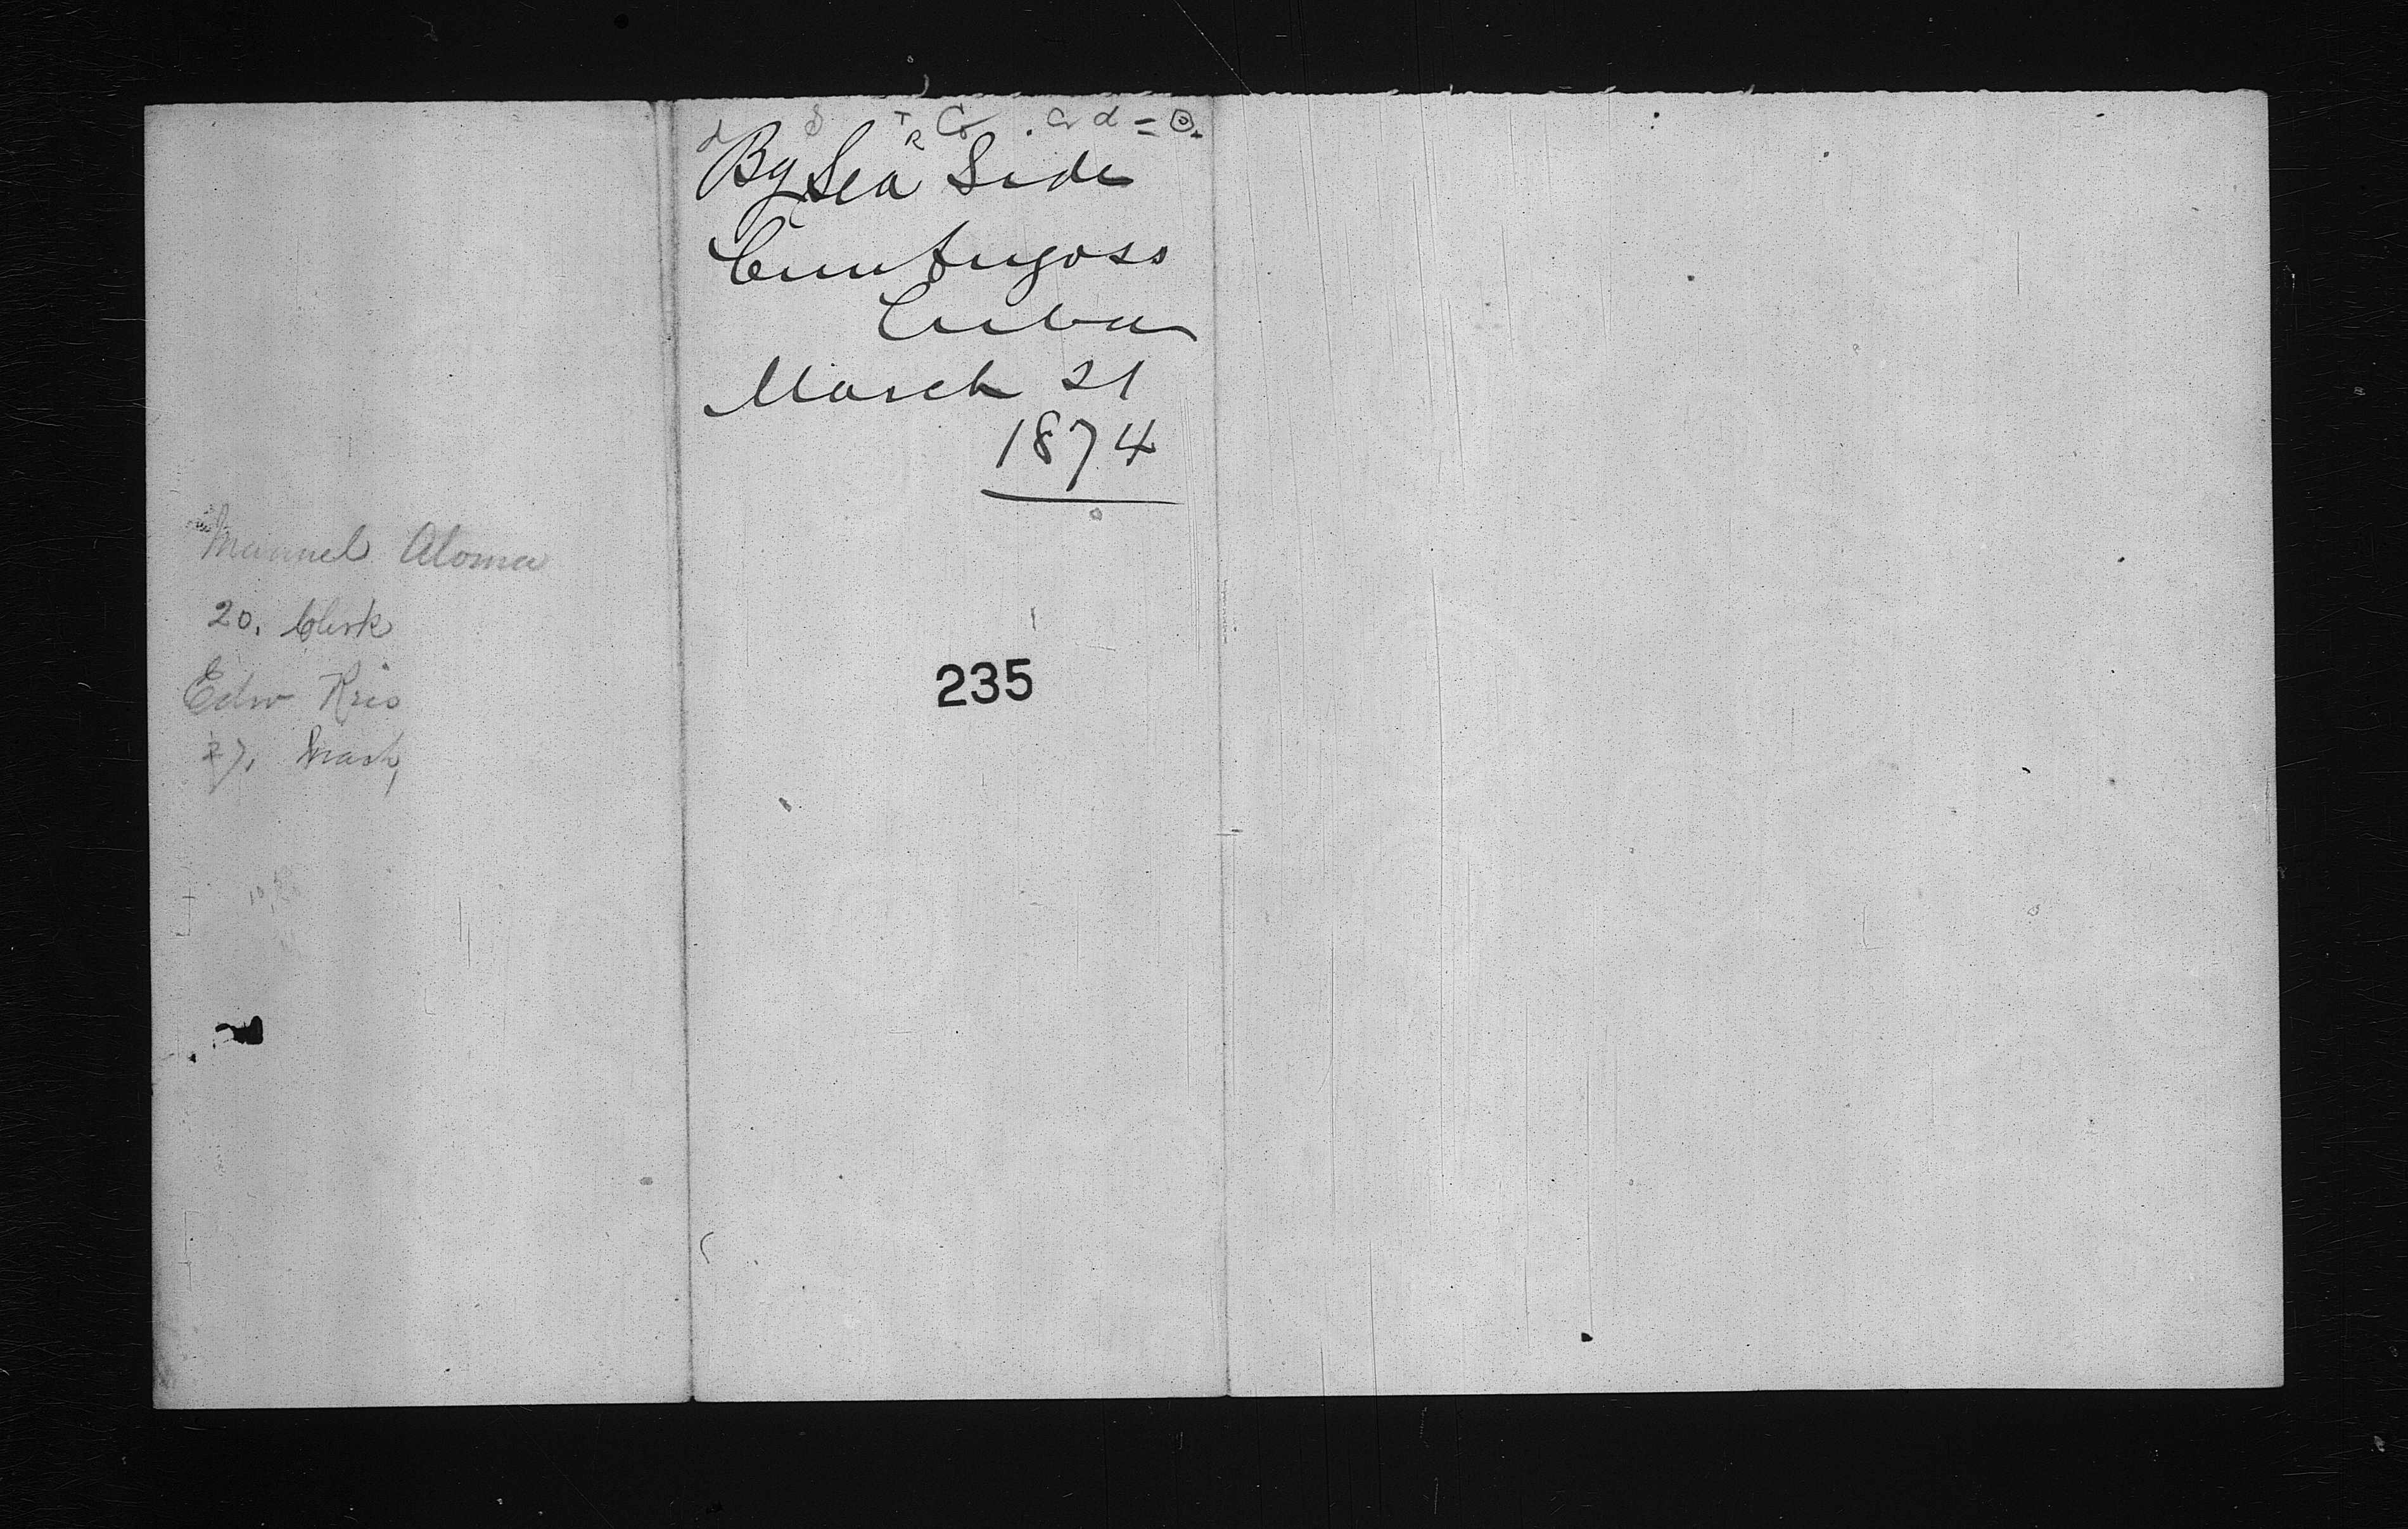 Bg Sea Side
Cunfugoss
Cuba
March 21
1874
235
Manuel Aloma
20. Clerk
Edw Rris
27. Mach,